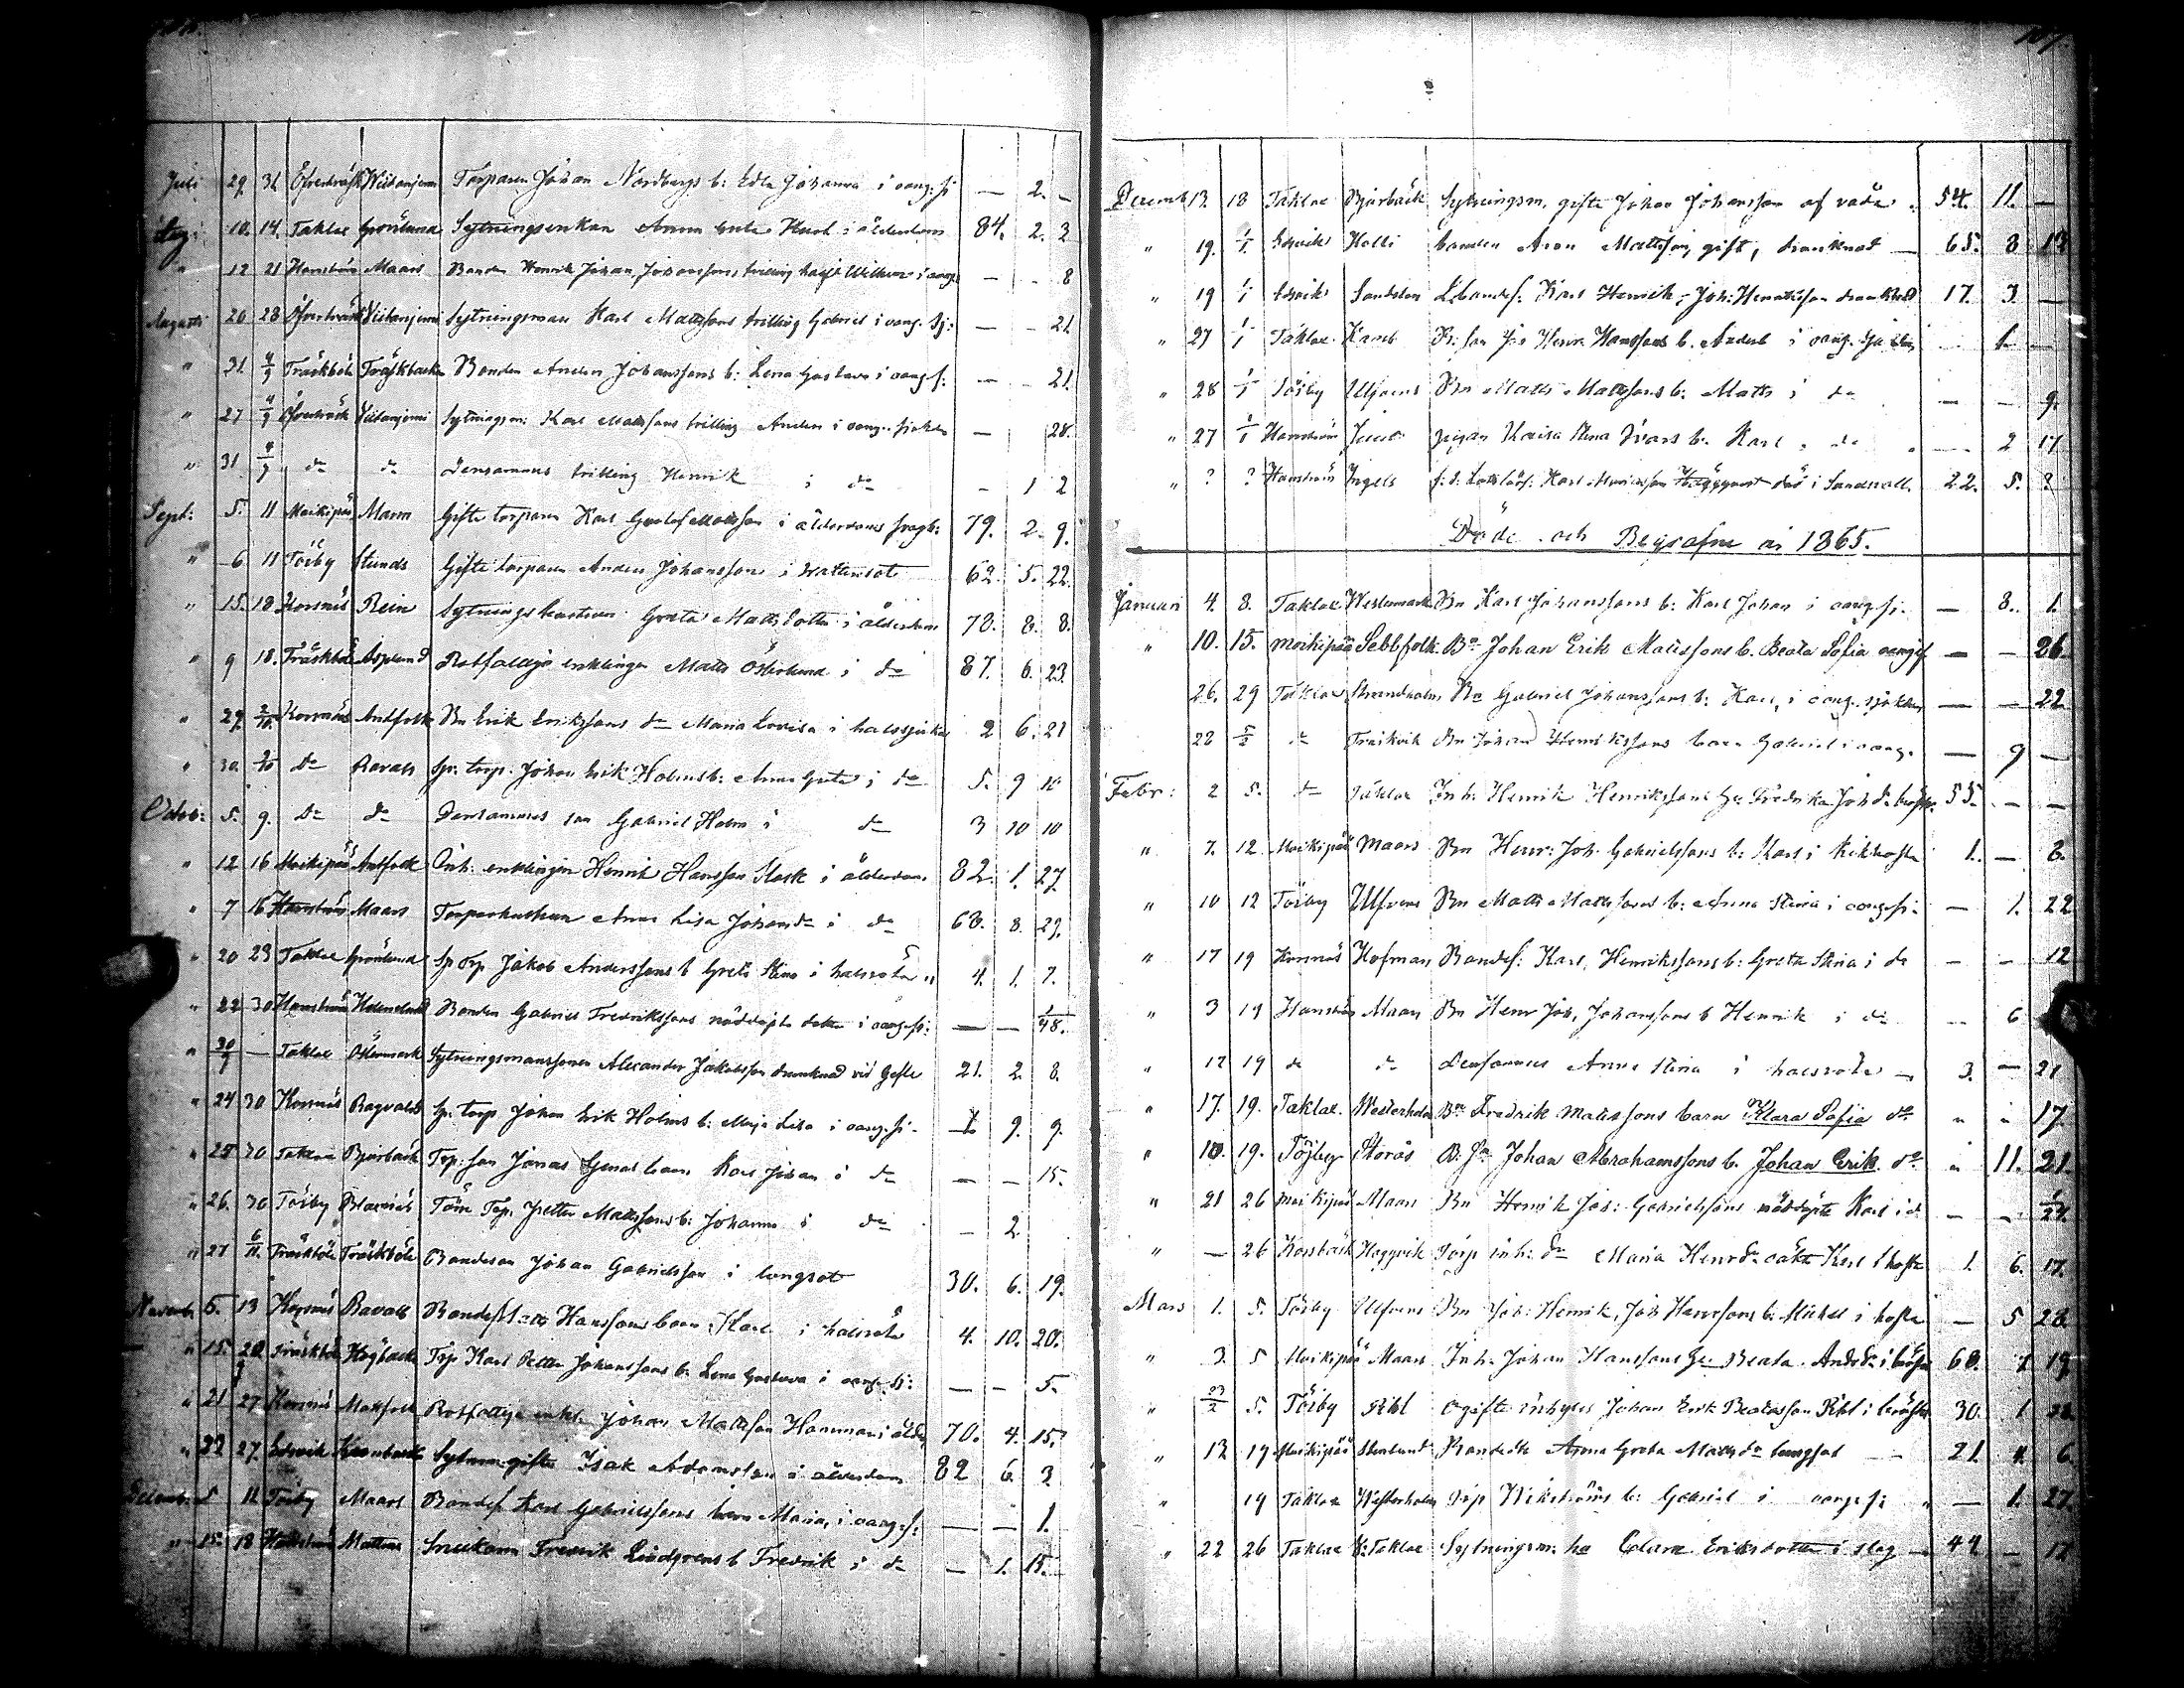 Juli 29 31 Öfverträsk Wiitanjemi Torparen Johan Nordbergs b: Edla Johanna i oang: sj — 2. —
Aug: 10. 14. Taklax Grönlund Sytningsenkan Anna Hurt i ålderdom 84. 2. 3
" 12 21 Harrström Maars Bonden Henrik Johan Johanssons tvilling Wilhem i oang. — — 8
Augusti 20 28 Öfverträsk Wiitanjemi Sytningsman Karl Mattssons trilling Gabriel i oang. sj: — — 21
" 31. 4/9 Träskböle Träskbacka Bonden Anders Johanssons b: Lena Gustava i oang. s: — — 21.
" 27 4/9 Öfverträsk Wiitanjemi Sytningsm: Karl Mattssons trilling Anders i oang. sjukdo — 28.
" 31 4/9 do do Densammes trilling Henrik i do — 1 2
Sept: 5. 11 Moikipää Marn Gifte torparen Karl Gustaf Mattsson i ålderdoms 79. 2. 9.
" 6 11 Töjby Stunds Gifte torparen Anders Johansson i wattusot 62. 5. 22.
" 15. 18 Korsnäs Rein Sytningshustrun Greta Mattsdotter i ålderdom 78. 8. 8.
" 9 18. Träskböle Asplund Rotfattige enklingen Matts Österlund i do 87. 6. 23.
" 29. 2/10 Korsnäs Antfolk Bn Erik Erikssons do Maria Lovisa i halssjuka 2 6. 21
" 30. 2/10 do Ravals Sp. torp. Johan Erik Holms b: Anna Greta i do 5. 9 10
Octob: 5. 9. do do Densammes son Gabriel Holm i do 3 10 10
" 12 16 Moikipää Antfolk Inh: enklingen Henrik Hansson Stark i ålderdom. 82. 1. 27.
" 7 16 Harrström Maars Torparhustrun Anna Lisa Johansdr i do 63. 8. 29.
" 20 23 Taklax Grönlund Sp Torp Jakob Anderssons b Greta Stina i halsröta 4. 1. 7.
" 22 30 Harrström Bonden Gabriel Fredrikssons nöddöpta dotter i oang. sj: — — 1/48.
" 30/9 — Taklax Östermark Sytningsmanssonen Alexander Jakobsson drunknad vid Gefle 21. 2. 8.
" 24 30 Korsnäs Ragvalds Sp. torp Johan Erik Holms b: Maja Lisa i oang. sj. 1. 9. 9.
" 28 30 Taklax Bjurbäck Torp: son Jonas barn Karl Johan i do — — 15.
" 26. 30 Töjby Blaxnäs Torp. Petter Mattssons b: Johanna i do — 2
" 27 6/11. Träskböle Träskböle Bondeson Johan Gabrielsson i lungsot 30. 6. 19.
Novemb. 6. 13 Korsnäs Ravals Bondes Matts Hanssons barn Karl i halsröta 4. 10. 20.
" 15. 20 Träskböle Högbacka Torp Karl Petter Johanssons b: Lena Gustava i oang. sj: — — 5.
" 21 27 Korsnäs Matsfolk Rotfattige enkl. Johan Mattsson Hamman i ålder 70. 4. 15.
" 22 27. Edsvik Sytnm gifte Isak Adamsson i ålderdom 82 6. 3
Decemb. 5 11 Töjby Maars Bondes Karl Gabrielssons barn Maria, i oang. s: — — 1.
" 15. 18 Harrström Mattas Snickaren Fredrik Lindgrens b Fredrik i do — 1. 15.
107.
Decemb 13 18 Taklax Bjurbäck Sytningsm. gifte Johan Johansson af våda 54. 11. —
" 19. 1/1 Edsvik Holli bonden Aron Mattsson, gift, drunknad — 65. 8 13
" 19 1/1 Edsvik Sandsten Lbondes. Karl Henrik, Joh: Henriksson drunknad 17. 3. —
" 27 1/1 Taklax B: son Joh Henr. Hanssons b. Anders i oang. sjukdo — 1. —
" 28 1/1 Töjby Ulfvens Bn Matts Mattssons b. Matts i do — — 9.
" 27 1/1 Harrström Juut pigan Kaisa Stena Ivars b. Karl do — 2 17
" ? ? Harrström Ingels Karl Häggqvist död i Sundsvall. 22. 5. ?
Döde och Begrafne år 1865.
Januari 4. 8. Taklax Westermark Bn Karl Johanssons b: Karl Johan i oang. sj. — 8. 1.
" 10. 15. Moikipää Sebbfolk. Bn Johan Erik Matissons b. Beata Sofia oang sj — — 26.
26. 29 Taklax Strandholm Bn Gabriel Johanssons b: Karl, i oang. sjukdom — — 22
28 5/2 do Träskvik Bn Johan Henrikssons barn Gabriel i oang. — 9 —
Febr: 2 5. do Taklax Inh. Henrik Henrikssons hu Fredrika Johdr 55. — —
" 7. 12 Moikipää Maars Bn Henr: Joh. Gabrielssons b: Karl i kikhosta 1. — 8.
" 10 12 Töjby Ulfvens Bn Matts Mattssons b: Anna Stina i oang. sj. — 1. 22
" 17 19 Korsnäs Hofman Bondes: Karl Henrikssons b: Greta Stina i do — — 12
" 3 19 Harrström Maars Bn Henr Joh. Johanssons b Henrik i do — 6
" 12 19 do do Densammes Anna Stina i halsröta — 3. — 21
" 17. 19. Taklax. Westerholm Bn Fredrik Matissons barn Klara Sofia do " " 17.
" 10. 19. Töjby Storås B. Sn Johan Abrahamssons b. Johan Erik. do " 11. 21
" 21 26 Moikipää Maars Bn Henrik Joh: Gabrielssons nöddöpte Karl i d — — 1/24.
" — 26 Korsbäck Häggvik Torp inh: do Maria Henrdr oäkta Karl i hosta 1. 6. 17.
Mars 1. 5. Töjby Ulfvens Bn Joh: Henrik, Joh Hanssons b. Mickel i hosta — 5 28
" 3. 5 Moikipää Maars Inh. Johan Hanssons hu Beata Andsdr i bröstsj 60. 19.
" 23/2 5. Töjby Ribl ogifte inhyses Johan Erik Beatasson Ribl i bröstsj 30. 1 22
" 13 19 Moikipää Stenlund Bondedr Anna Greta Mattsdr lungsot — 21. 4. 6.
" 19 Taklax Westerholm Torp Wikströms b: Gabriel i oang. sj: " — 1. 27.
" 22 26 Taklax Taklax Sytningsm: hu Clara Eriksdotter i slag — 42 — 12